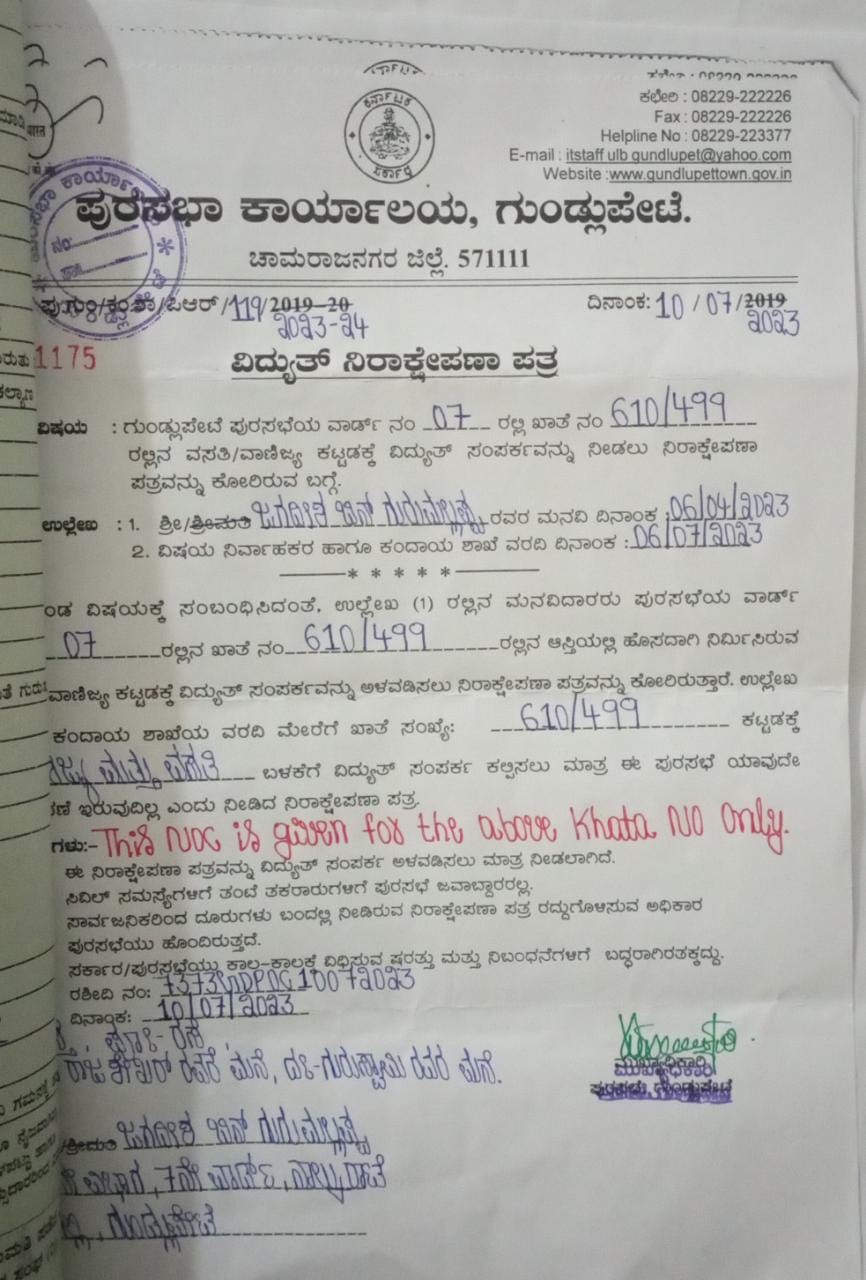 ಕರ್ನಾಟಕ
ಸರ್ಕಾರ
ಕಛೇರಿ : 08229-222226
Fax : 08229-222226
Helpline No : 08229-223377
E-mail : itstaff ulb gundlupet@yahoo.com
Website :www.gundlupettown.gov.in
ಪುರಸಭಾ ಕಾರ್ಯಾಲಯ, ಗುಂಡ್ಲುಪೇಟೆ.
ಚಾಮರಾಜನಗರ ಜಿಲ್ಲೆ. 571111
ಪು.ಗುಂ/ಕಂ.ಶಾ/ಪಿಆರ್ /119/2019-20 ದಿನಾಂಕ: 10/07/2019
2023-24 2023
1175
ವಿದ್ಯುತ್ ನಿರಾಕ್ಷೇಪಣಾ ಪತ್ರ
ವಿಷಯ : ಗುಂಡ್ಲುಪೇಟೆ ಪುರಸಭೆಯ ವಾರ್ಡ್ ನಂ 07 ರಲ್ಲಿ ಖಾತೆ ನಂ 610/499
ರಲ್ಲಿನ ವಸತಿ/ವಾಣಿಜ್ಯ ಕಟ್ಟಡಕ್ಕೆ ವಿದ್ಯುತ್ ಸಂಪರ್ಕವನ್ನು ನೀಡಲು ನಿರಾಕ್ಷೇಪಣಾ
ಪತ್ರವನ್ನು ಕೋರಿರುವ ಬಗ್ಗೆ.
ಉಲ್ಲೇಖ : 1. ಶ್ರೀ/ಶ್ರೀಮತಿ ಜಗದೀಶ ಬಿನ್ ಗುರುಮಲ್ಲಪ್ಪ ರವರ ಮನವಿ ದಿನಾಂಕ :06/04/2023
2. ವಿಷಯ ನಿರ್ವಾಹಕರ ಹಾಗೂ ಕಂದಾಯ ಶಾಖೆ ವರದಿ ದಿನಾಂಕ :06/07/2023
* * * * *
ಂಡ ವಿಷಯಕ್ಕೆ ಸಂಬಂಧಿಸಿದಂತೆ. ಉಲ್ಲೇಖ (1) ರಲ್ಲಿನ ಮನವಿದಾರರು ಪುರಸಭೆಯ ವಾರ್ಡ್
07 ರಲ್ಲಿನ ಖಾತೆ ನಂ 610/499 ರಲ್ಲಿನ ಆಸ್ತಿಯಲ್ಲಿ ಹೊಸದಾಗಿ ನಿರ್ಮಿಸಿರುವ
ವಾಣಿಜ್ಯ ಕಟ್ಟಡಕ್ಕೆ ವಿದ್ಯುತ್ ಸಂಪರ್ಕವನ್ನು ಅಳವಡಿಸಲು ನಿರಾಕ್ಷೇಪಣಾ ಪತ್ರವನ್ನು ಕೋರಿರುತ್ತಾರೆ. ಉಲ್ಲೇಖ
ಕಂದಾಯ ಶಾಖೆಯ ವರದಿ ಮೇರೆಗೆ ಖಾತೆ ಸಂಖ್ಯೆ: 610/499 ಕಟ್ಟಡಕ್ಕೆ
ಮತ್ತು ವಸತಿ ಬಳಕೆಗೆ ವಿದ್ಯುತ್ ಸಂಪರ್ಕ ಕಲ್ಪಿಸಲು ಮಾತ್ರ ಈ ಪುರಸಭೆ ಯಾವುದೇ
ಣೆ ಇರುವುದಿಲ್ಲ ಎಂದು ನೀಡಿದ ನಿರಾಕ್ಷೇಪಣಾ ಪತ್ರ.
ಗಳು:- This NOC is given for the above Khata NO Only.
ಈ ನಿರಾಕ್ಷೇಪಣಾ ಪತ್ರವನ್ನು ವಿದ್ಯುತ್ ಸಂಪರ್ಕ ಅಳವಡಿಸಲು ಮಾತ್ರ ನೀಡಲಾಗಿದೆ.
ಸಿವಿಲ್ ಸಮಸ್ಯೆಗಳಿಗೆ ತಂಟೆ ತಕರಾರುಗಳಿಗೆ ಪುರಸಭೆ ಜವಾಬ್ದಾರರಲ್ಲ.
ಸಾರ್ವಜನಿಕರಿಂದ ದೂರುಗಳು ಬಂದಲ್ಲಿ ನೀಡಿರುವ ನಿರಾಕ್ಷೇಪಣಾ ಪತ್ರ ರದ್ದುಗೊಳಿಸುವ ಅಧಿಕಾರ
ಪುರಸಭೆಯು ಹೊಂದಿರುತ್ತದೆ.
ಸರ್ಕಾರ/ಪುರಸಭೆಯು ಕಾಲ-ಕಾಲಕ್ಕೆ ವಿಧಿಸುವ ಷರತ್ತು ಮತ್ತು ನಿಬಂಧನೆಗಳಿಗೆ ಬದ್ಧರಾಗಿರತಕ್ಕದ್ದು.
ರಶೀದಿ ನಂ:
ದಿನಾಂಕ: 10/07/2023
ರಾಜಶೇಖರ್ ರವರ ಮನೆ, ದ:-ಗುರುಸ್ವಾಮಿ ರವರ ಮನೆ.
ಮುಖ್ಯಾಧಿಕಾರಿ
ಪುರಸಭೆ, ಗುಂಡ್ಲುಪೇಟೆ
/ಶ್ರೀಮತಿ ಜಗದೀಶ ಬಿನ್ ಗುರುಮಲ್ಲಪ್ಪ
7ನೇ ವಾರ್ಡ್,
ಗುಂಡ್ಲುಪೇಟೆ